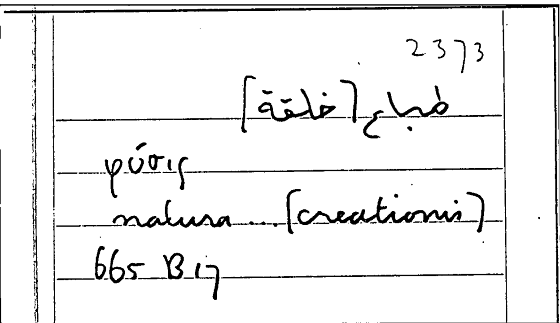 2373
طباع [خلقة]
φύσις
natura ... [creationis]
665 B 17